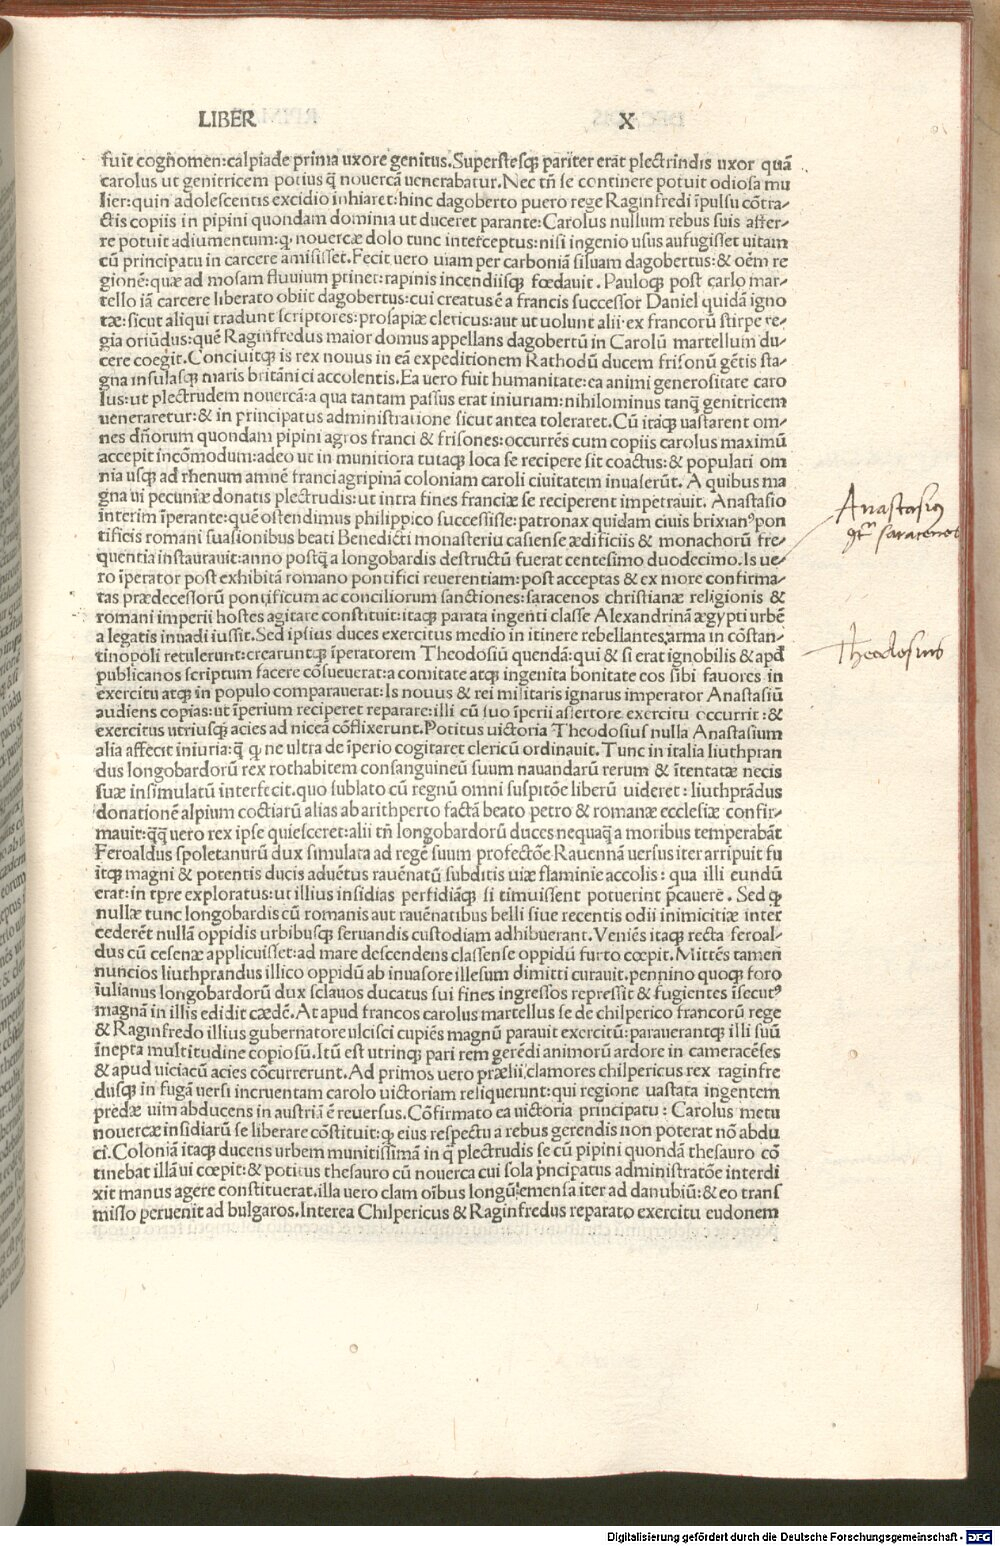 LIBER X
fuit cogñomen:calpiade prima uxore genitus.Superstesqꝫ pariter erāt plectrindis uxor quā
carolus ut genitricem potius q̄ nouercā uenerabatur.Nec tñ se continere potuit odiosa mu
lier:quin adolescentis excidio inhiaret:hinc dagoberto puero rege Raginfredi īpulsu cōtra-
ctis copiis in pipini quondam dominia ut duceret parante:Carolus nullum rebus suis affer-
re potuit adiumentum:ꝙ nouercæ dolo tunc interceptus:nisi ingenio usus aufugisset uitam
cū principatu in carcere amisisset.Fecit uero uiam per carboniā siluam dagobertus:& oēm re
gionē:quæ ad mosam fluuium ptinet:rapinis incendiisqꝫ fœdauit.Pauloqꝫ post carlo mar-
tello iā carcere liberato obiit dagobertus:cui creatus ē a francis successor Daniel quidā igno
tæ:sicut aliqui tradunt scriptores:prosapiæ clericus:aut ut uolunt alii·ex francorū stirpe re-
gia oriūdus:quē Raginfredus maior domus appellans dagobertū in Carolū martellum du-
cere coegit.Conciuitqꝫ is rex nouus in eā expeditionem Rathodū ducem frisonū gētis sta-
gna insulasqꝫ maris britānici accolentis.Ea uero fuit humanitate:ea animi generositate caro
lus:ut plectrudem nouercā:a qua tantam passus erat iniuriam:nihilominus tanq̄ genitricem
ueneraretur:& in principatus administratione sicut antea toleraret.Cū itaqꝫ uastarent om-
nes dñorum quondam pipini agros franci & frisones:occurrēs cum copiis carolus maximū
accepit incōmodum:adeo ut in munitiora tutaqꝫ loca se recipere sit coactus:& populati om
nia usqꝫ ad rhenum amnē franci agripinā coloniam caroli ciuitatem inuaserūt.A quibus ma
gna ui pecuniæ donatis plectrudis:ut intra fines franciæ se reciperent impetrauit. Anastasio
interim īperante:quē ostendimus philippico successisse:patronax quidam ciuis brixian⁹pon
tificis romani suasionibus beati Benedicti monasteriu casiense ædificiis & monachorū fre-
quentia instaurauit:anno postq̄ a longobardis destructū fuerat centesimo duodecimo.Is ue-
ro īperator post exhibitā romano pontifici reuerentiam:post acceptas & ex more confirma-
tas prædecessorū pontificum ac conciliorum sanctiones:saracenos christianæ religionis &
romani imperii hostes agitare constituit:itaqꝫ parata ingenti classe Alexandrinā ægypti urbē
a legatis inuadi iussit.Sed ipsius duces exercitus medio in itinere rebellantes arma in cōstan-
tinopoli retulerunt:crearuntqꝫ īperatorem Theodosiū quendā:qui & si erat ignobilis & apđ
publicanos scriptum facere cōsueuerat:a comitate atqꝫ ingenita bonitate eos sibi fauores in
exercitu atqꝫ in populo comparauerat:Is nouus & rei militaris ignarus imperator Anastasiū
audiens copias:ut īperium reciperet reparare:illi cū suo īperii assertore exercitu occurrit:&
exercitus utriusqꝫ acies ad niceā cōflixerunt.Potitus uictoria Theodosius nulla Anastasium
alia affecit iniuria:q̄ ꝙ ne ultra de īperio cogitaret clericū ordinauit.Tunc in italia liuthpran
dus longobardorū rex rothabitem consanguineū suum nauandarū rerum & ītentatæ necis
suæ insimulatū interfecit.quo sublato cū regnū omni suspitōe liberū uideret:liuthprādus
donationē alpium coctiarū alias ab arithperto factā beato petro & romanæ ecclesiæ confir-
mauit:q̄q̄ uero rex ipse quiesceret:alii tñ longobardorū duces nequaq̄ a moribus temperabāt
Feroaldus spoletanurū dux simulata ad regē suum profectōe Rauennā uersus iter arripuit fu
itqꝫ magni & potentis ducis aduētus rauēnatū subditis uiæ flaminie accolis:qua illi eundū
erat:in tpre exploratus:ut illius insidias perfidiāqꝫ si timuissent potuerint p̄cauere.Sed ꝙ
nullæ tunc longobardis cū romanis aut rauēnatibus belli siue recentis odii inimicitiæ inter
cederēt nullā oppidis urbibusqꝫ seruandis custodiam adhibuerant.Veniēs itaqꝫ recta feroal-
dus cū cesenæ applicuisset:ad mare descendens classense oppidū furto cœpit.Mittēs tamen
nuncios liuthprandus illico oppidū ab inuasore illesum dimitti curauit.pennino quoqꝫ foro
iulianus longobardorū dux sclauos ducatus sui fines ingressos repressit & fugientes īsecut⁹
magnā in illis edidit cædē.At apud francos carolus martellus se de chilperico francorū rege
& Raginfredo illius gubernatore ulcisci cupiēs magnū parauit exercitū:parauerantqꝫ illi suū
īnepta multitudine copiosū.Itū est utrinqꝫ pari rem gerēdi animorū ardore in cameracēses
& apud uiciacū acies cōcurrerunt.Ad primos uero prælii clamores chilpericus rex raginfre
dusqꝫ in fugā uersi incruentam carolo uictoriam reliquerunt:qui regione uastata ingentem
predæ uim abducens in austriā ē reuersus.Cōfirmato ea uictoria principatu:Carolus metu
nouercæ insidiarū se liberare cōstituit:ꝙ eius respectu a rebus gerendis non poterat nō abdu
ci.Coloniā itaqꝫ ducens urbem munitissimā in q̄ plectrudis se cū pipini quondā thesauro cō
tinebat illā ui cœpit:& potitus thesauro cū nouerca cui sola p̄ncipatus administratōe interdi
xit manus agere constituerat.illa uero clam oībus longū emensa iter ad danubiū:& eo trans
misso peruenit ad bulgaros.Interea Chilpericus & Raginfredus reparato exercitu eudonem
Anastasius
saracenos
Theodosius
Digitalisierung gefördert durch die Deutsche Forschungsgemeinschaft - DFG